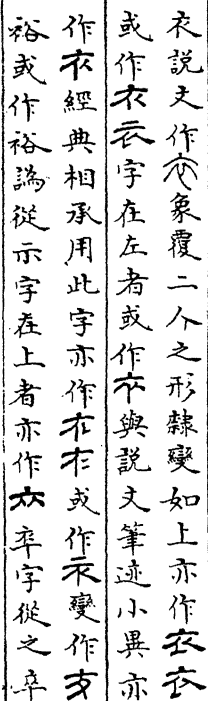 衣說文作象覆二人之形隸變如上亦作衣衣
或作衣字在左者或作與說文筆迹小異亦
作衣經典相承用此字亦作或作衣變作
裕或作裕譌從示字在上者亦作卒字從之卒